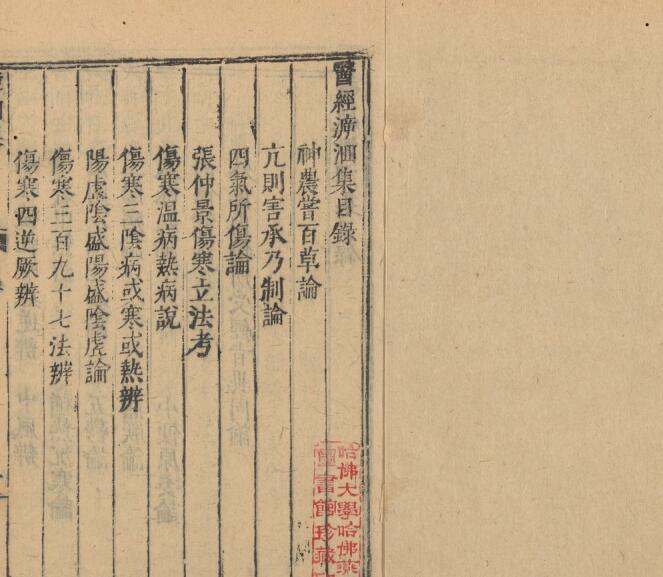 醫經溯洄集目錄
神農嘗百草論
亢則害承乃制論
四氣所傷論
張仲景傷寒立法考
傷寒温病熱病說
傷寒三陰病或寒或熱辨
陽虛陰盛陽盛陰虛論
傷寒三百九十七法辨
傷寒四逆厥辨
哈佛大學哈佛燕
圖書館珍藏